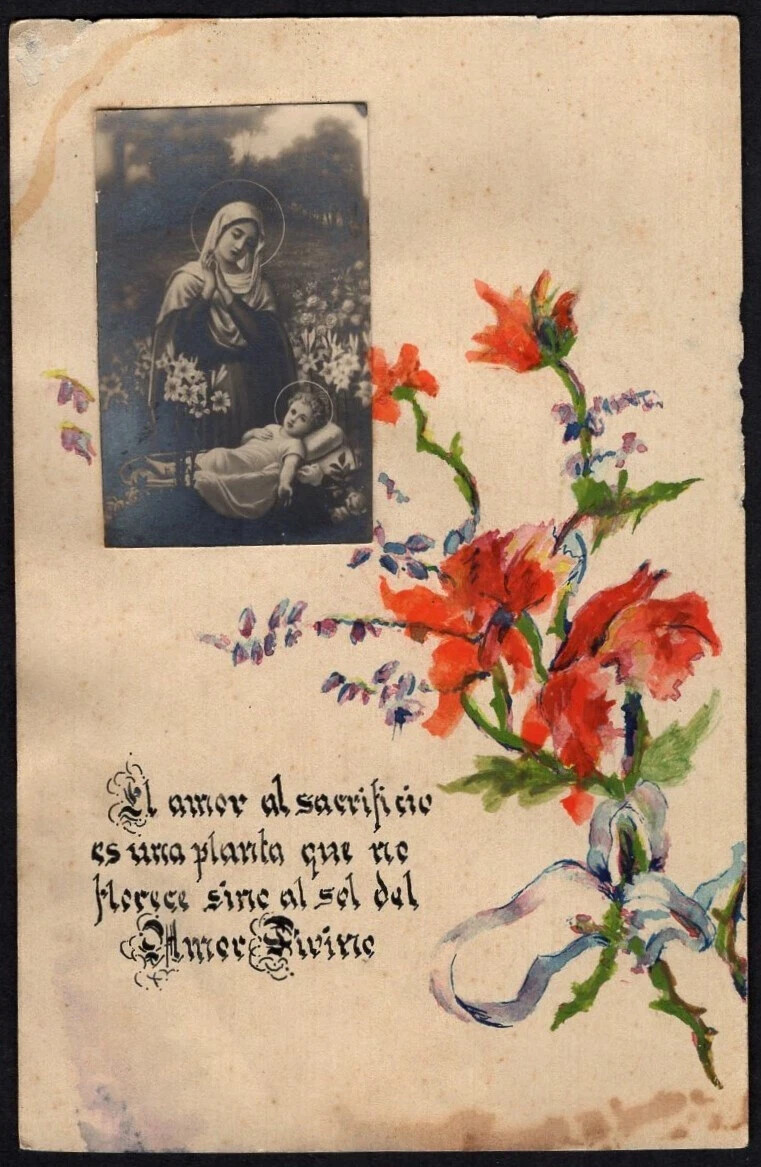 El amor al sacrificio
es una planta que no
florece sino al sol del
Amor Divino